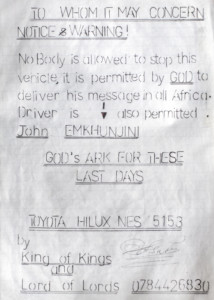 TO WHOM IT MAY CONCERN
NOTICE & WARNING!
NoBody is allowed to stop this
vericle, it is permitted by GOD to
deliver his message in all Africa.
Driver is also permitted.
John EMKHUNJINI
GOD's ARK FOR THESE
LAST DAYS
TOYOTA HILUX NES 5153
by
King of Kings
and
Lord of Lords 0784426830